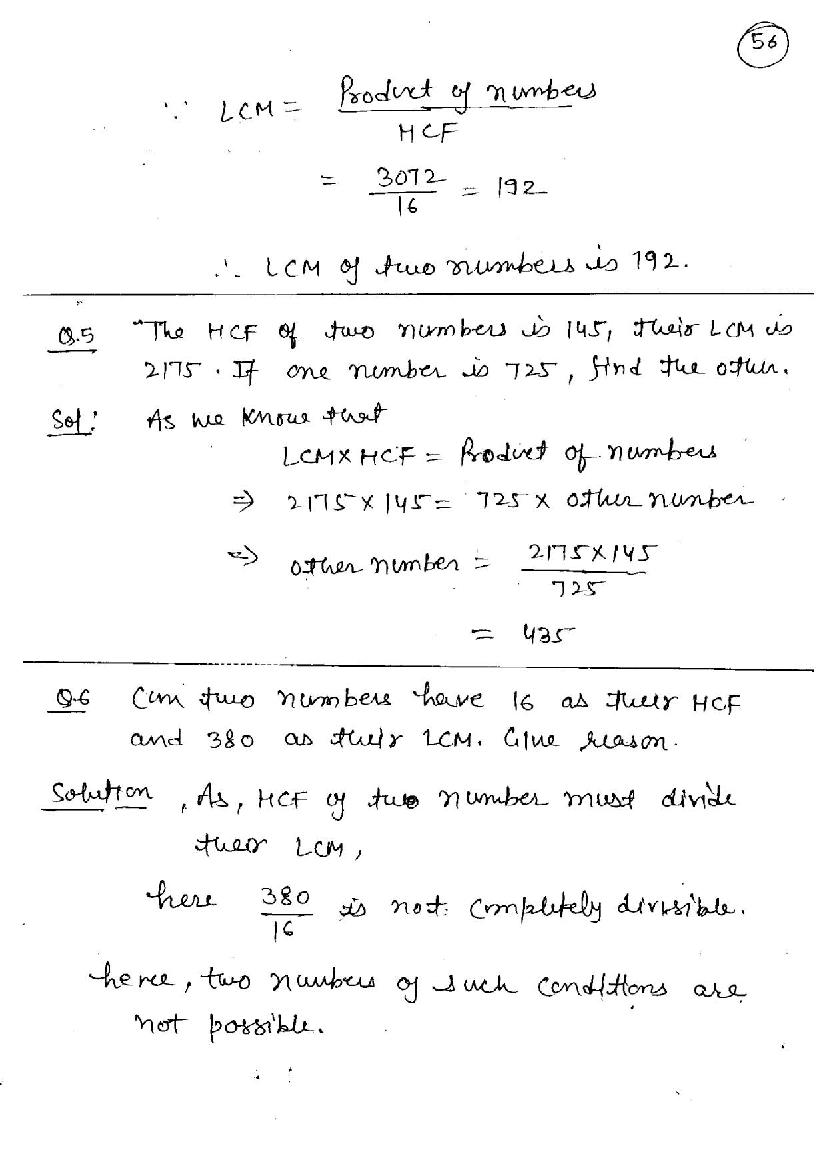 56
∵ LCM = Product of numbers
HCF
= 3072 = 192
16
∴ LCM of two numbers is 192.
Q.5 "The HCF of two numbers is 145, their LCM is
2175. If one number is 725, find the other.
Sol: As we know that
LCM × HCF = Product of numbers
⇒ 2175 × 145 = 725 × other number
⇒ other number = 2175 × 145
725
= 435
Q.6 Can two numbers have 16 as their HCF
and 380 as their LCM. Give reason.
Solution, As, HCF of two number must divide
their LCM,
here 380 is not completely divisible.
16
hence, two numbers of such conditions are
not possible.